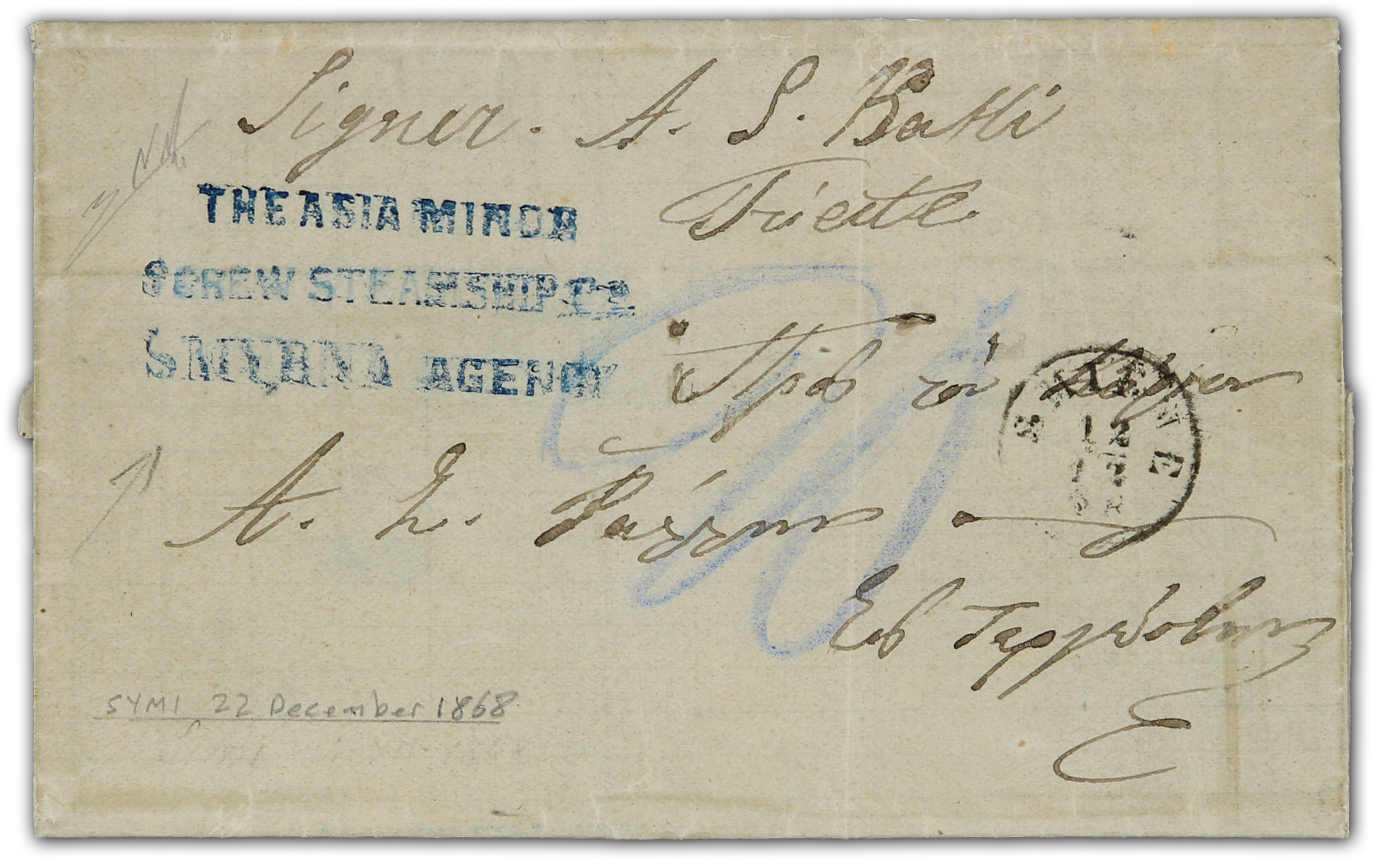 Signor. A. S. Ralli
Trieste
THE ASIA MINOR
SCREW STEAMSHIP Co.
SMYRNA AGENCY
Πρὸς τὸν Κύριον
SMIRNE
12
12
Α. Σ. Ράλλην
Εἰς Τεργέστην
SYMI 22 December 1868